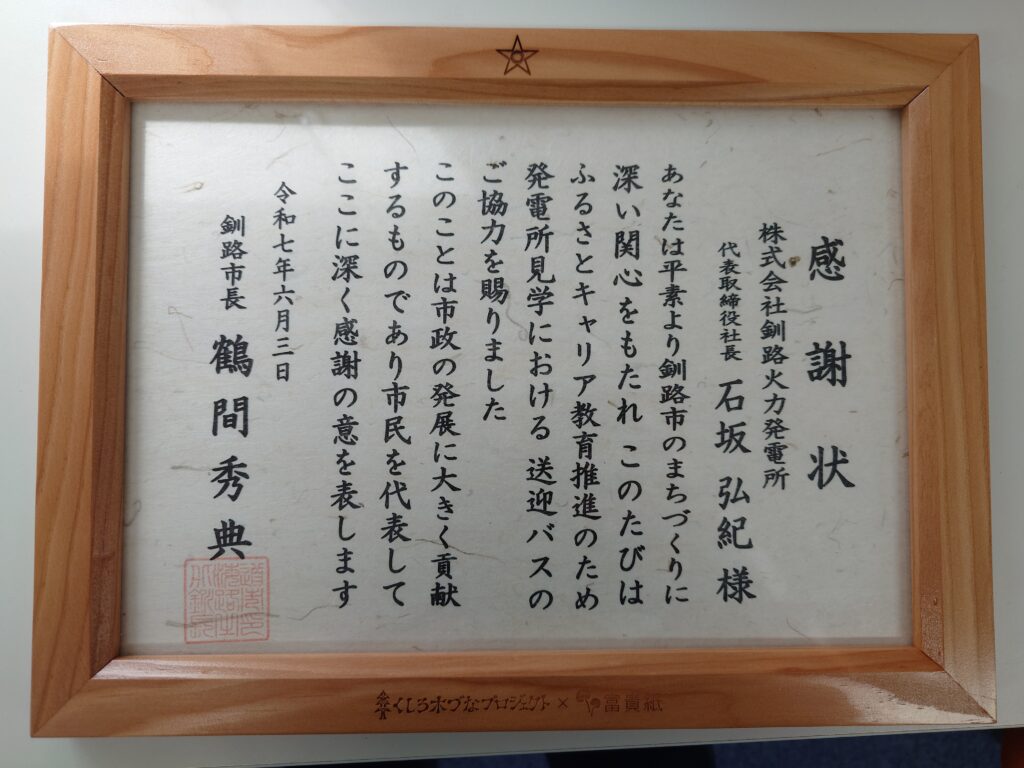 感謝状
株式会社釧路火力発電所
代表取締役社長 石坂 弘紀 様
あなたは平素より釧路市のまちづくりに
深い関心をもたれ このたびは
ふるさとキャリア教育推進のため
発電所見学における 送迎バスの
ご協力を賜りました
このことは市政の発展に大きく貢献
するものであり市民を代表して
ここに深く感謝の意を表します
令和七年六月三日
釧路市長 鶴間秀典
くしろ木づなプロジェクト × 富貴紙